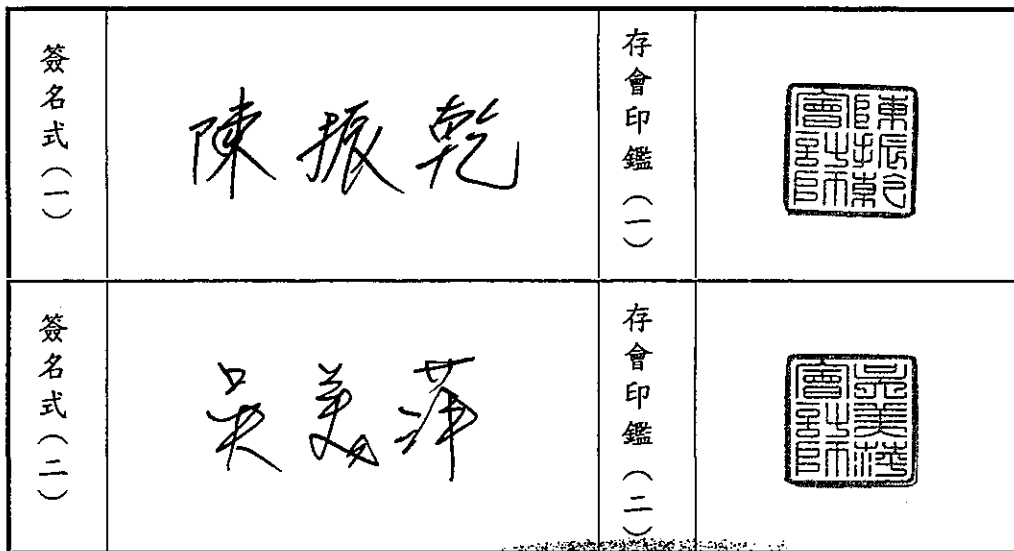 簽名式（一）
陳振乾
存會印鑑（一）
陳振乾會計師
簽名式（二）
吳美萍
存會印鑑（二）
吳美萍會計師